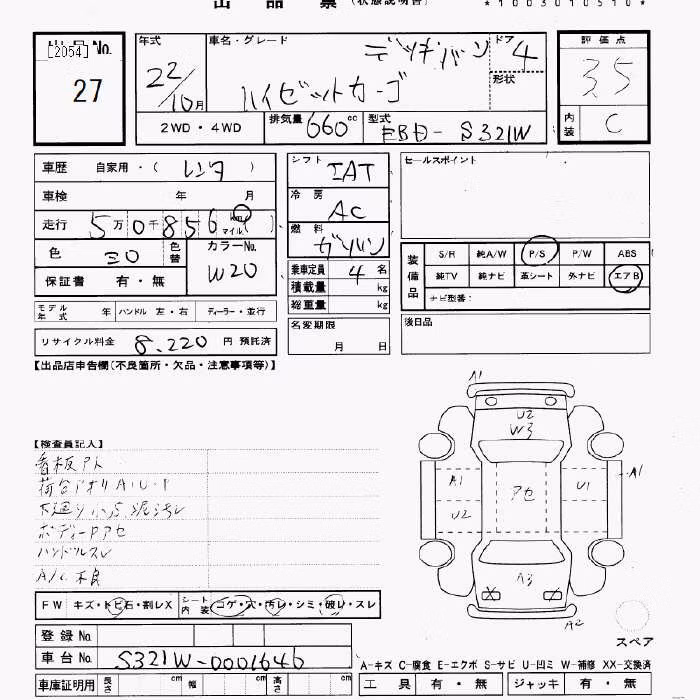 出品票 (状態説明書)
*1003010510*
出品No. [2054]
27
年式 22/10月
車名・グレード デッキバン ハイゼットカーゴ
ドア 4
形状
評価点 3.5
内装 C
2WD・4WD
排気量 660cc
型式 EBD-S321W
車歴 自家用・(レンタ)
車検 年 月
走行 5万0千856 km マイル
色 シロ 色替
カラーNo. W20
保証書 有・無
モデル年式 年 ハンドル 左・右 ディーラー・並行
リサイクル料金 8,220 円 預託済
シフト IAT
冷房 AC
燃料 ガソリン
乗車定員 4 名
積載量 kg
総重量 kg
名変期限
月 日
セールスポイント
装備品
S/R 純A/W P/S P/W ABS
純TV 純ナビ 革シート 外ナビ エアB
ナビ型番:
後日品
【出品店申告欄(不良箇所・欠品・注意事項等)】
【検査員記入】
看板アト
荷台ドオリA・U・P
下廻り小S 泥汚レ
ボディーPアセ
ハンドルスレ
A/C 不良
A1
U2
W3
A1
U2
アセ
U1
A1
A3
X X
A2
スペア
FW キズ・トビ石・割レX
シート内装 コゲ・穴・汚レ・シミ・破レ・スレ
登録No.
車台No. S321W-0001646
車庫証明用 長さ cm 幅 cm 高さ cm
A-キズ C-腐食 E-エクボ S-サビ U-凹ミ W-補修 XX-交換済
工具 有・無 ジャッキ 有・無